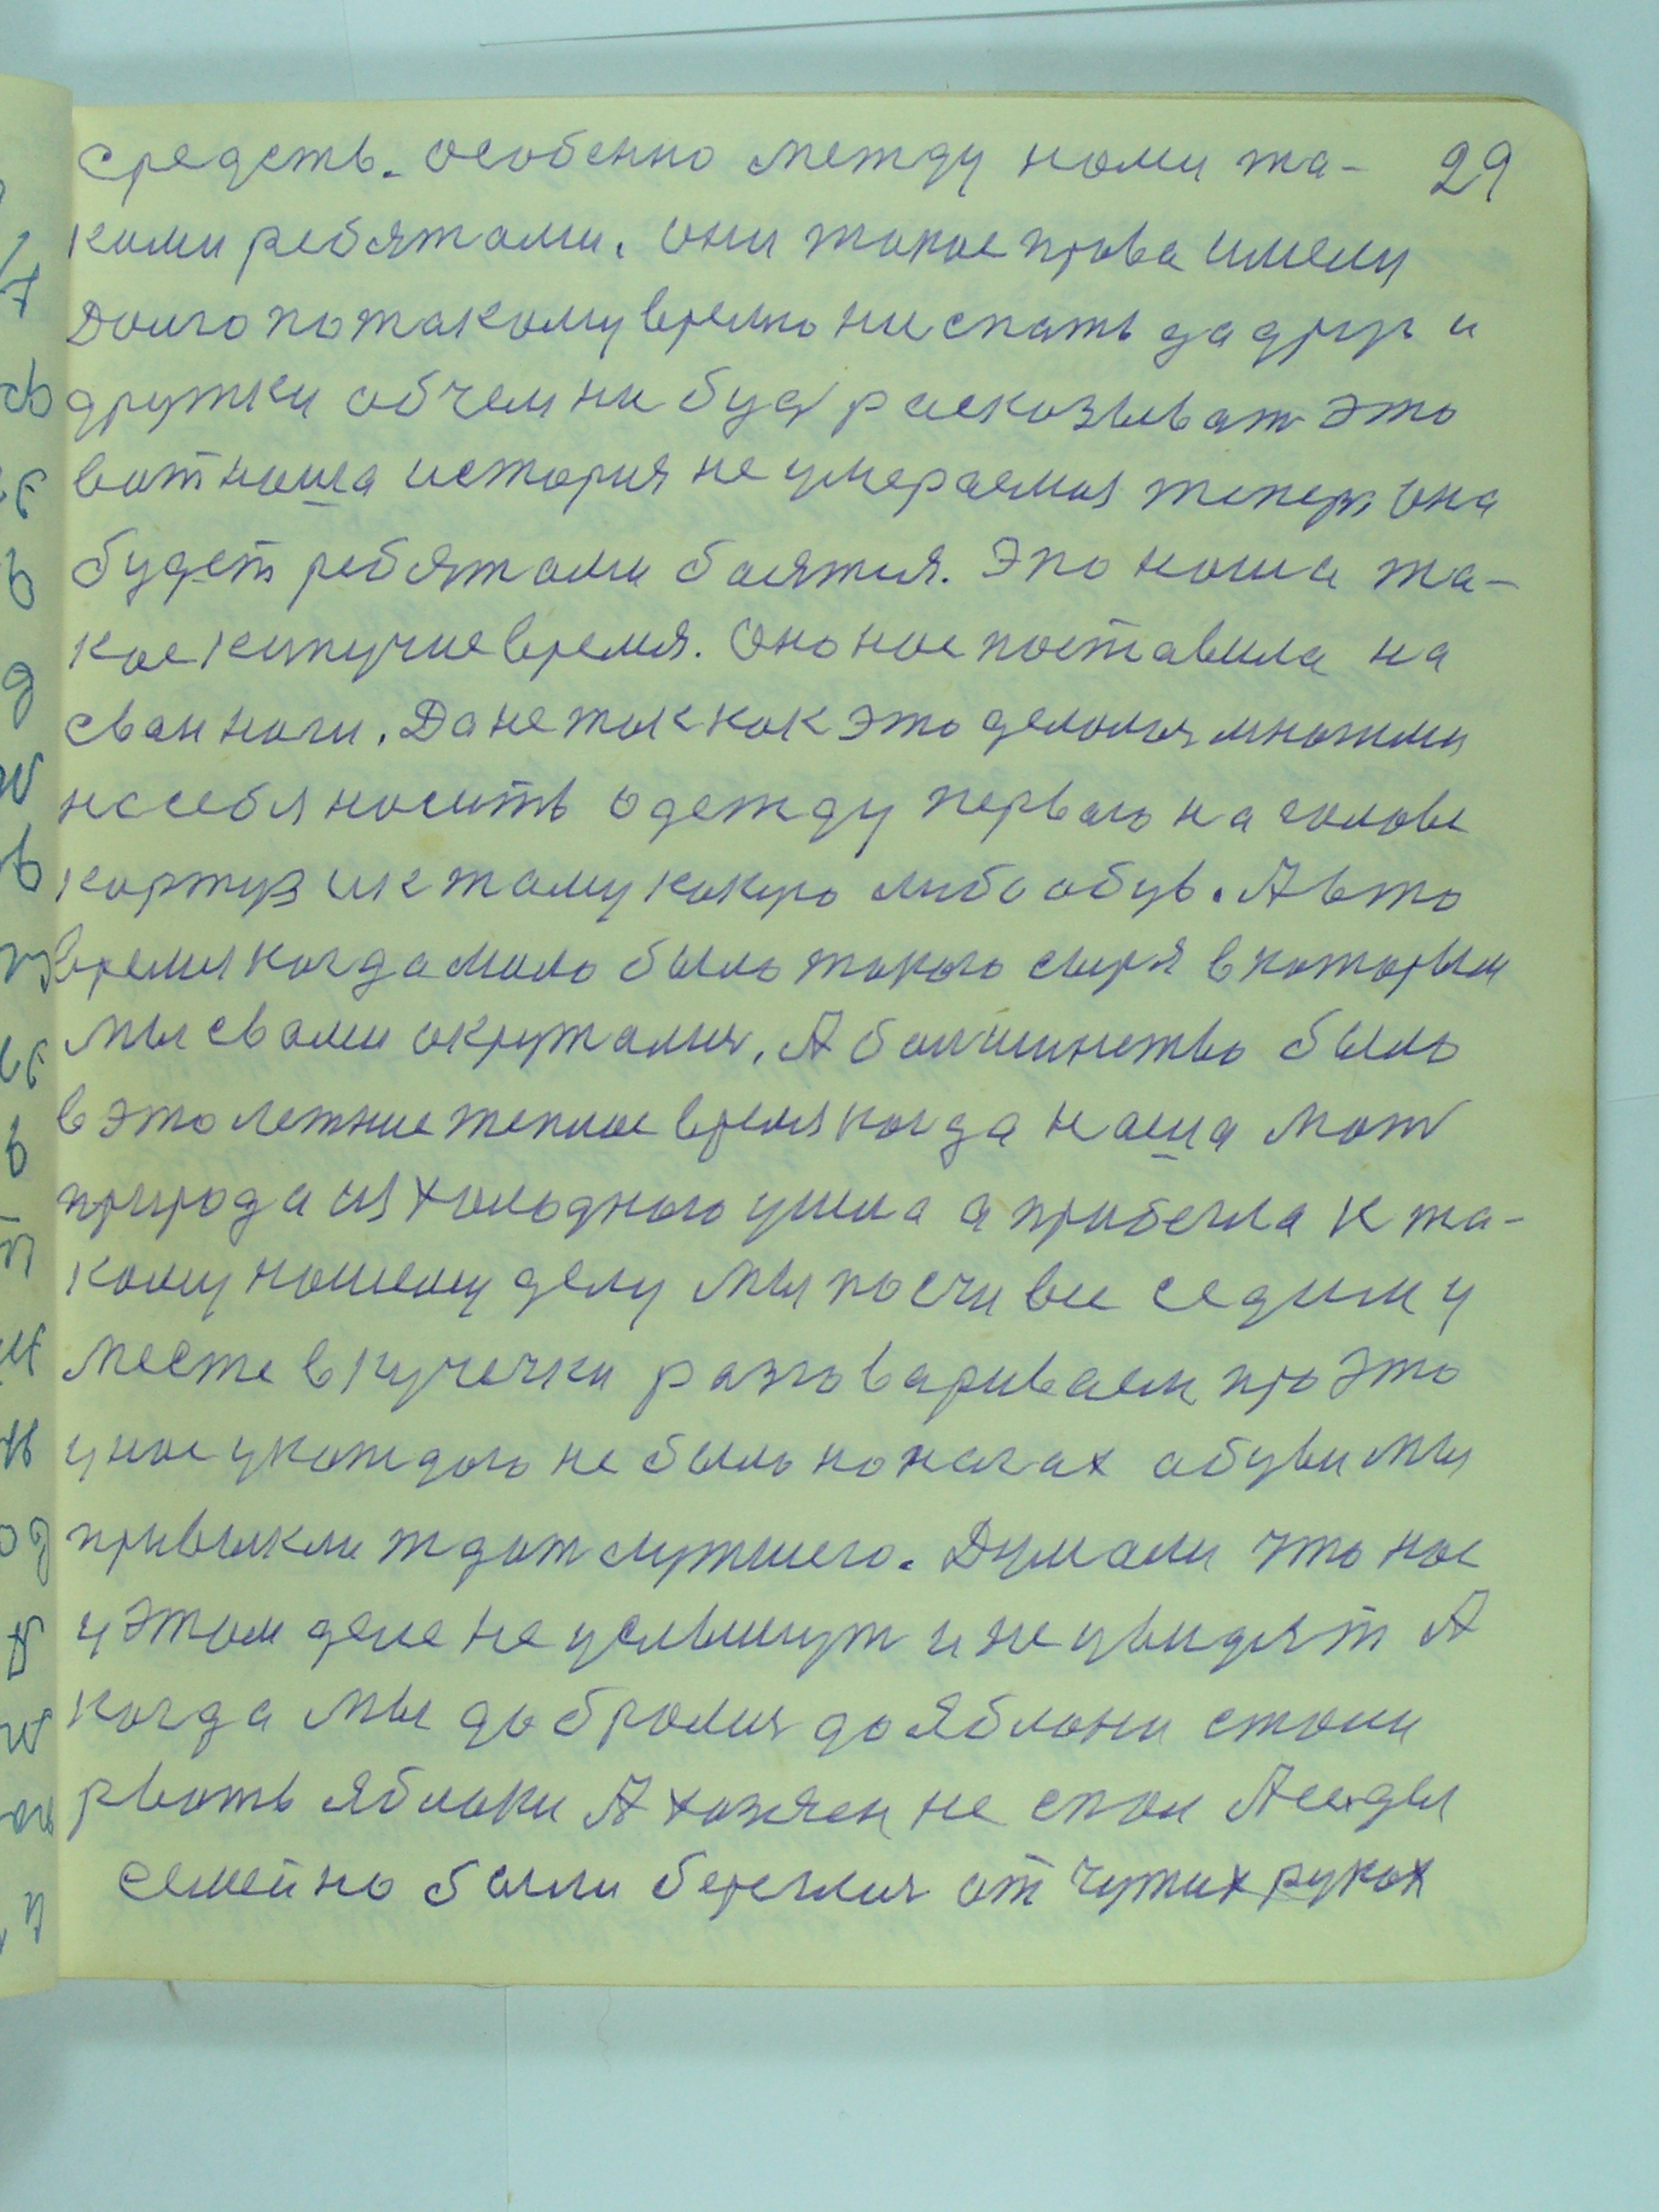 средств. особенно между нами та- 29
кими ребятами. они такое права имели
Долго по такому время ни спать да друг и
дружки обчем ни буд расказыват это
вот наша история не умераемая теперь она
будет ребятами боятся. Это наша та-
кое кипучие время. Оно нас поставила на
сваи ноги. Да не так как это делался многими
на себя носить одежду первого на голове
картуз и к тому какую либо обув. А в то
время когда мало было такого сыря в которым
мы свами окружался. А болшинство было
в это летние теплое время когда наша мат
природа из холодного ушла а прибегла к та-
кому нашему делу мы почи все седим у
месте в кучечки разговариваем про это
у нас укаждого не было на нагах обуви мы
привыкли ждат лутшего. Думали что нас
у этом деле не услышут и не увидят А
когда мы добролися до яблони стали
рвать яблоки А хозяен не спал
семейно были береглися от чужих руках